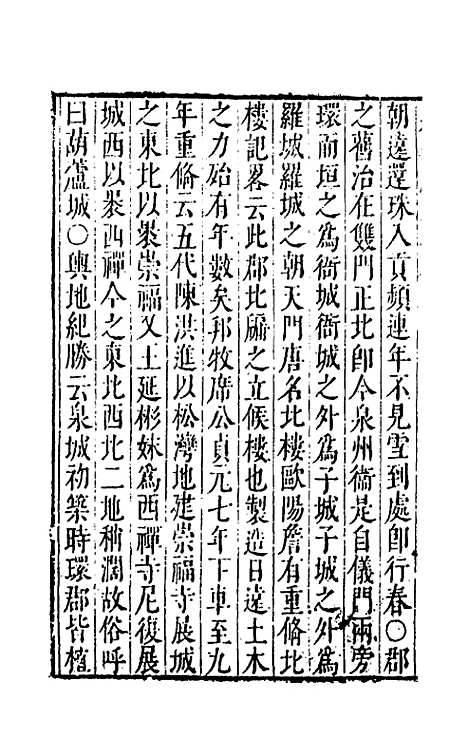 朝遠還珠入貢頻連年不見雪到處即行春○郡
之舊治在雙門正北即今泉州衞是自儀門兩旁
環而垣之爲衙城衙城之外爲子城子城之外爲
羅城羅城之朝天門唐名北樓歐陽詹有重脩北
樓記畧云此郡北牖之立候樓也製造日遠土木
之力殆有年數矣邦牧席公貞元七年下車至九
年重脩云五代陳洪進以松灣地建崇福寺展城
之東北以裴崇福又王延彬妹爲西禪寺尼復展
城西以裴西禪今之東北西北二地稍濶故俗呼
曰葫蘆城○輿地紀勝云泉城初築時環郡皆植